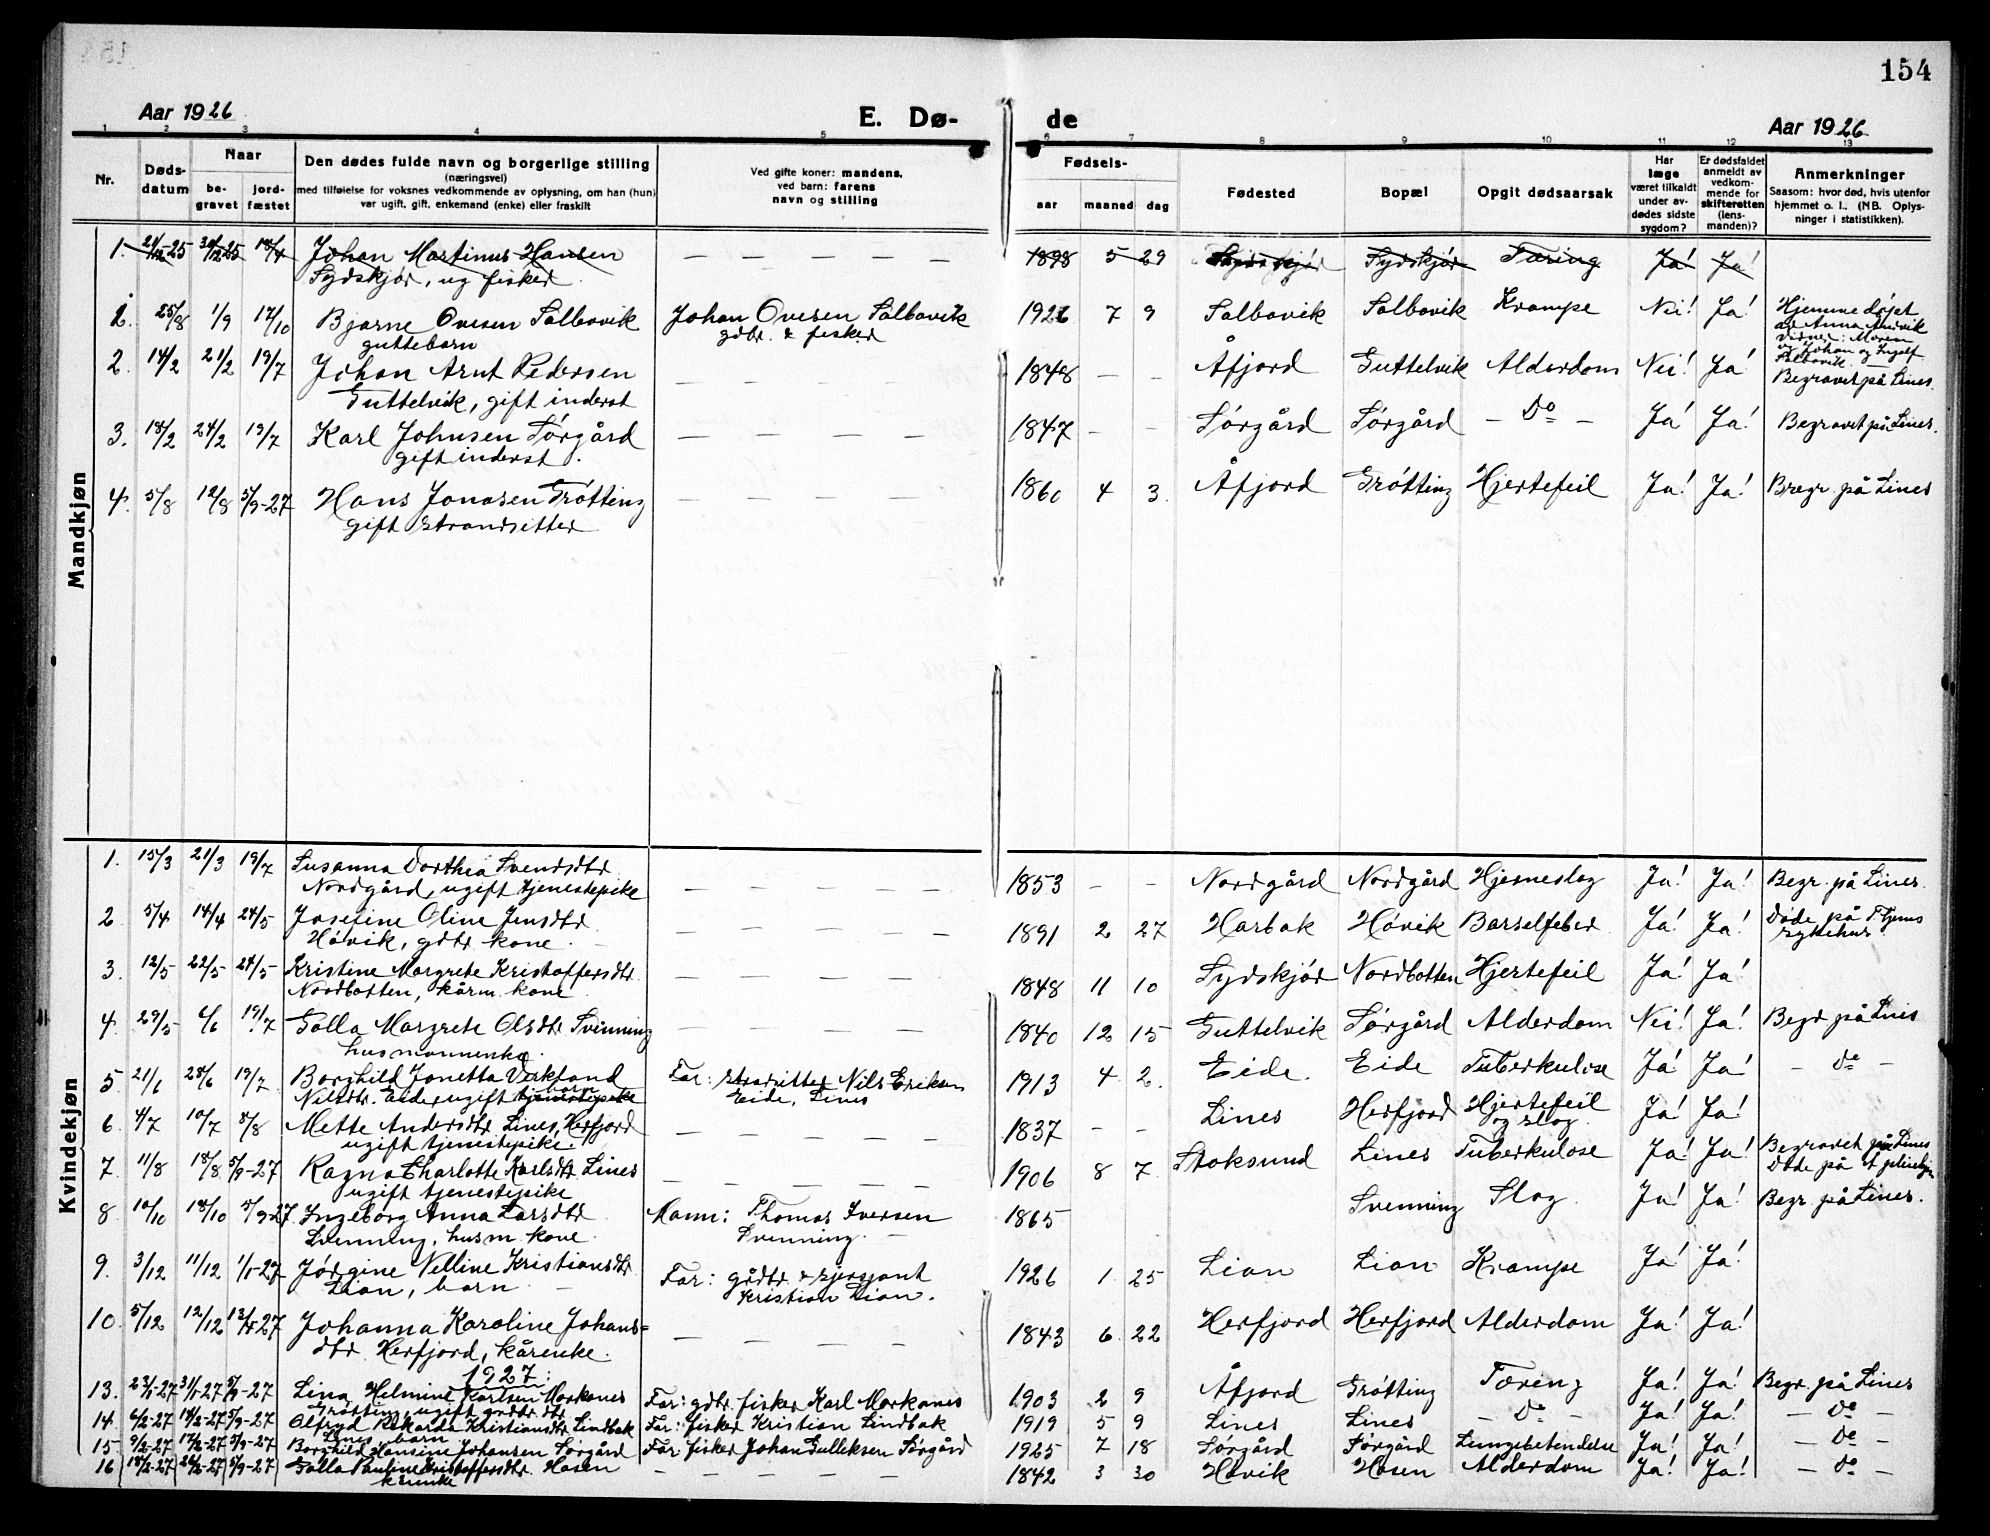 154
Aar 1926
E. Dø-
de
Aar 1926
1 2 3 4 5 6 7 8 9 10 11 12 13
Nr.
Døds-
datum
Naar
be-
gravet
jord-
fæstet
Den dødes fulde navn og borgerlige stilling
(næringsvei)
med tilføielse for voksnes vedkommende av oplysning, om han (hun)
var ugift, gift, enkemand (enke) eller fraskilt
Ved gifte koner: mandens,
ved barn: farens
navn og stilling
Fødsels-
aar maaned dag
Fødested
Bopæl
Opgit dødsaarsak
Har
læge
været tilkaldt
under av-
dødes sidste
sygdom?
Er dødsfaldet
anmeldt av
vedkom-
mende for
skifteretten
(lens-
manden)?
Anmerkninger
Saasom: hvor død, hvis utenfor
hjemmet o. l. (NB. Oplys-
ninger i statistikken).
Mandkjøn
1. 18/4 Johan Martinus Hansen — — — — — 1898 5 29 Sydskjør Tæring Ja! Ja!
Sydskjør, ug fisker.
1. 25/8 1/9 17/10 Bjarne Ovesen Salbovik Johan Ovesen Salbovik 1926 7 9 Salbovik Salbovik Krampe Nei! Ja! Hjemmedøpt
guttebarn gdbr. & fisker av Anna
Vidner: Moren
og Johan og
Salbovik. —
2. 14/2 21/2 19/7 Johan Arnt Pedersen — — — 1848 — — Åfjord Guttelvik Alderdom Nei! Ja! Begravet på Lines.
Guttelvik, gift inderst
3. 18/2 24/2 19/7 Karl Johnsen Sørgård — — — — 1847 — — Sørgård Sørgård — Do — Ja! Ja! Begravet på Lines.
gift inderst.
4. 5/8 12/8 5/9-27 Hans Jonasen Grøtting — — — 1860 4 3. Åfjord Grøtting Hjertefeil Ja! Ja! Begr. på Lines
gift strandsitter
Kvindekjøn
1. 15/3 21/3 19/7 Susanna Dorthea Svendsdtr
Nordgård, ugift tjenestepike — — — — — 1853 — — Nordgård Nordgård Hjerneslag Ja! Ja! Begr. på Lines.
2 5/4 14/4 24/5 Josefine Oline Jensdtr — — — — — 1891 2 27 Harbak Høvik Barselfeber Ja! Ja! Døde på
Høvik, gdbr kone. — sykehus
3. 12/5 22/5 24/5 Kristine Margrete Kristoffersdtr 1848 11 10 Sydskjør Nordbotten Hjertefeil Ja! Ja!
Nordbotten, kårm. kone
4. 29/5 6/6 19/7 Golla Margrete Olsdtr Svinning — — — 1840 12 15 Guttelvik Sørgård Alderdom Nei! Ja! Begr på Lines
husmannenke.
5 21/6 28/6 19/7 Borghild Jonetta Verkland Far: strandsitter Nils Eriksen 1913 4 2. Eide. Eide Tuberkulose Ja! Ja! — Do —
Nilsdtr. Eide, ugift tjenestepike barn Eide, Lines
6 4/7 10/7 8/8 Mette Andersdtr Lines, Herfjord — — — — — 1837 — — Lines Herfjord Hjertefeil Ja! Ja!
ugift tjenestepike. og slag.
7 11/8 18/8 5/9-27 Ragna Charlotte Karlsdtr Lines — — — — — 1906 8 7 Stoksund Lines Tuberkulose Ja! Ja! Begravet på Lines
ugift tjenestepike Døde på
8 10/10 18/10 5/9-27. Ingeborg Anna Larsdtr Mann: Thomas Iversen 1865 Svenning Slag. Ja! Ja! Begr på Lines.
Svenning, husm. kone. Svenning. —
9. 3/12 11/12 1/5-27 Jørgine Nelline Kristiansdtr Far: gårdbr & sersjant 1926 1. 25 Lian Lian Krampe Ja! Ja!
Lian, barn — Kristian Lian.
10. 5/12 12/12 Johanna Karoline Johans- — — — 1843 6. 22 Herfjord Herfjord Alderdom Ja! Ja!
dtr. Herfjord, kårenke.
1927:
13. 23/1-27 31/1-27 5/9-27 Lina Helmine Karlsen Markanes Far: gdbr. fisker Karl Markanes 1903 2 9 Åfjord Grøtting Tæring Ja! Ja! Begr. på Lines
Grøtting, ugift grdbr dtr
14. 6/2-27 14/2-27 5/9-27 Alfryd Rikarda Kristiansdtr Lindbak Far: fisker Kristian Lindbak 1919 5 9 Lines Lines — Do — Ja! Ja! — Do —
Lines barn
15- 9/2-27 17/2-27 5/9-27 Borghild Hansine Johansen Sørgård Far fisker Johan Gulliksen Sørgård 1925 7 18 Sørgård Sørgård Lungebetendelse Ja! Ja! — Do —
16 18/2-27 26/2-27 5/9-27 Golla Pauline Kristoffersdtr Hosen — — — — — 1842 3 30 Høvik Hosen Alderdom Ja! Ja! — Do —